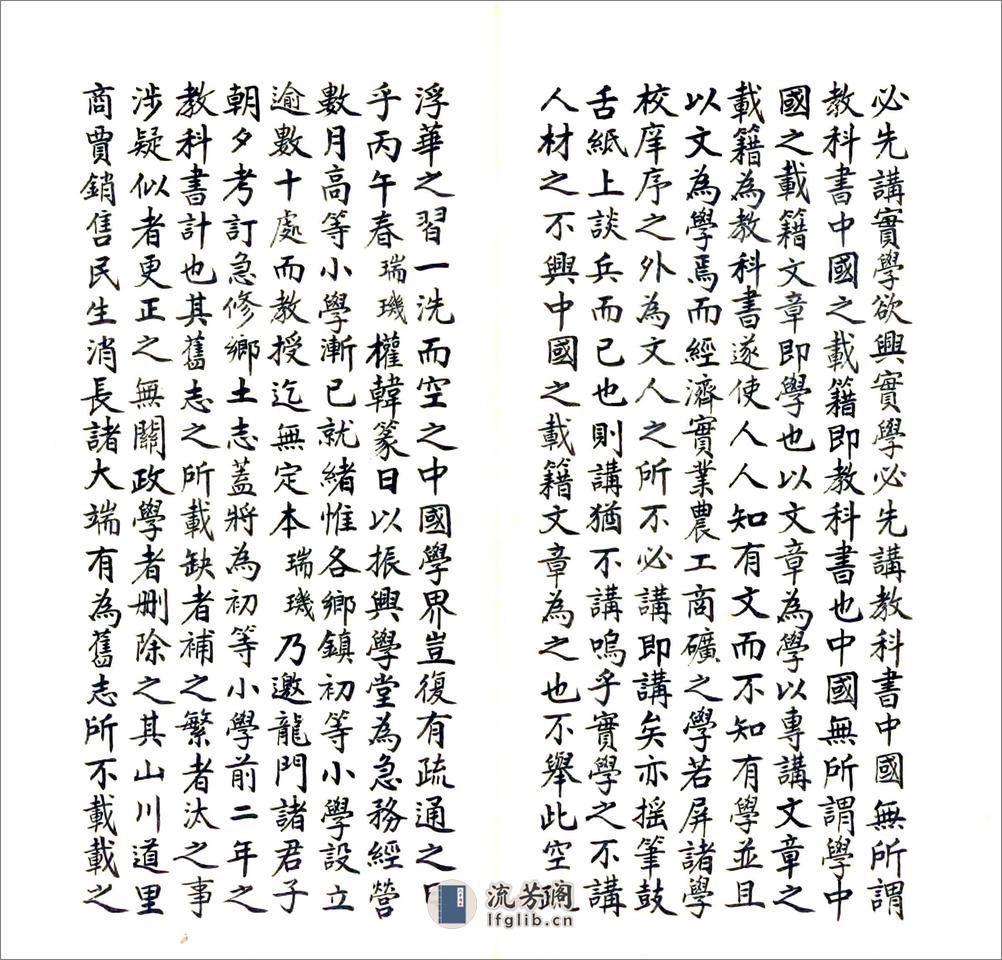 必先講實學欲興實學必先講教科書中國無所謂
教科書中國之載籍即教科書也中國無所謂學中
國之載籍文章即學也以文章為學以專講文章之
載籍為教科書遂使人人知有文而不知有學並且
以文為學焉而經濟實業農工商礦之學若屏諸學
校庠序之外為文人之所不必講即講矣亦搖筆鼓
舌紙上談兵而已也則講猶不講嗚乎實學之不講
人材之不興中國之載籍文章為之也不舉此空
浮華之習一洗而空之中國學界豈復有疏通之
乎丙午春瑞璣權韓篆日以振興學堂為急務經營
數月高等小學漸已就緒惟各鄉鎮初等小學設立
逾數十處而教授迄無定本瑞璣乃邀龍門諸君子
朝夕考訂急修鄉土志蓋將為初等小學前二年之
教科書計也其舊志之所載缺者補之繁者汰之事
涉疑似者更正之無關政學者刪除之其山川道里
商賈銷售民生消長諸大端有為舊志所不載載之
流芳阁
lfglib.cn